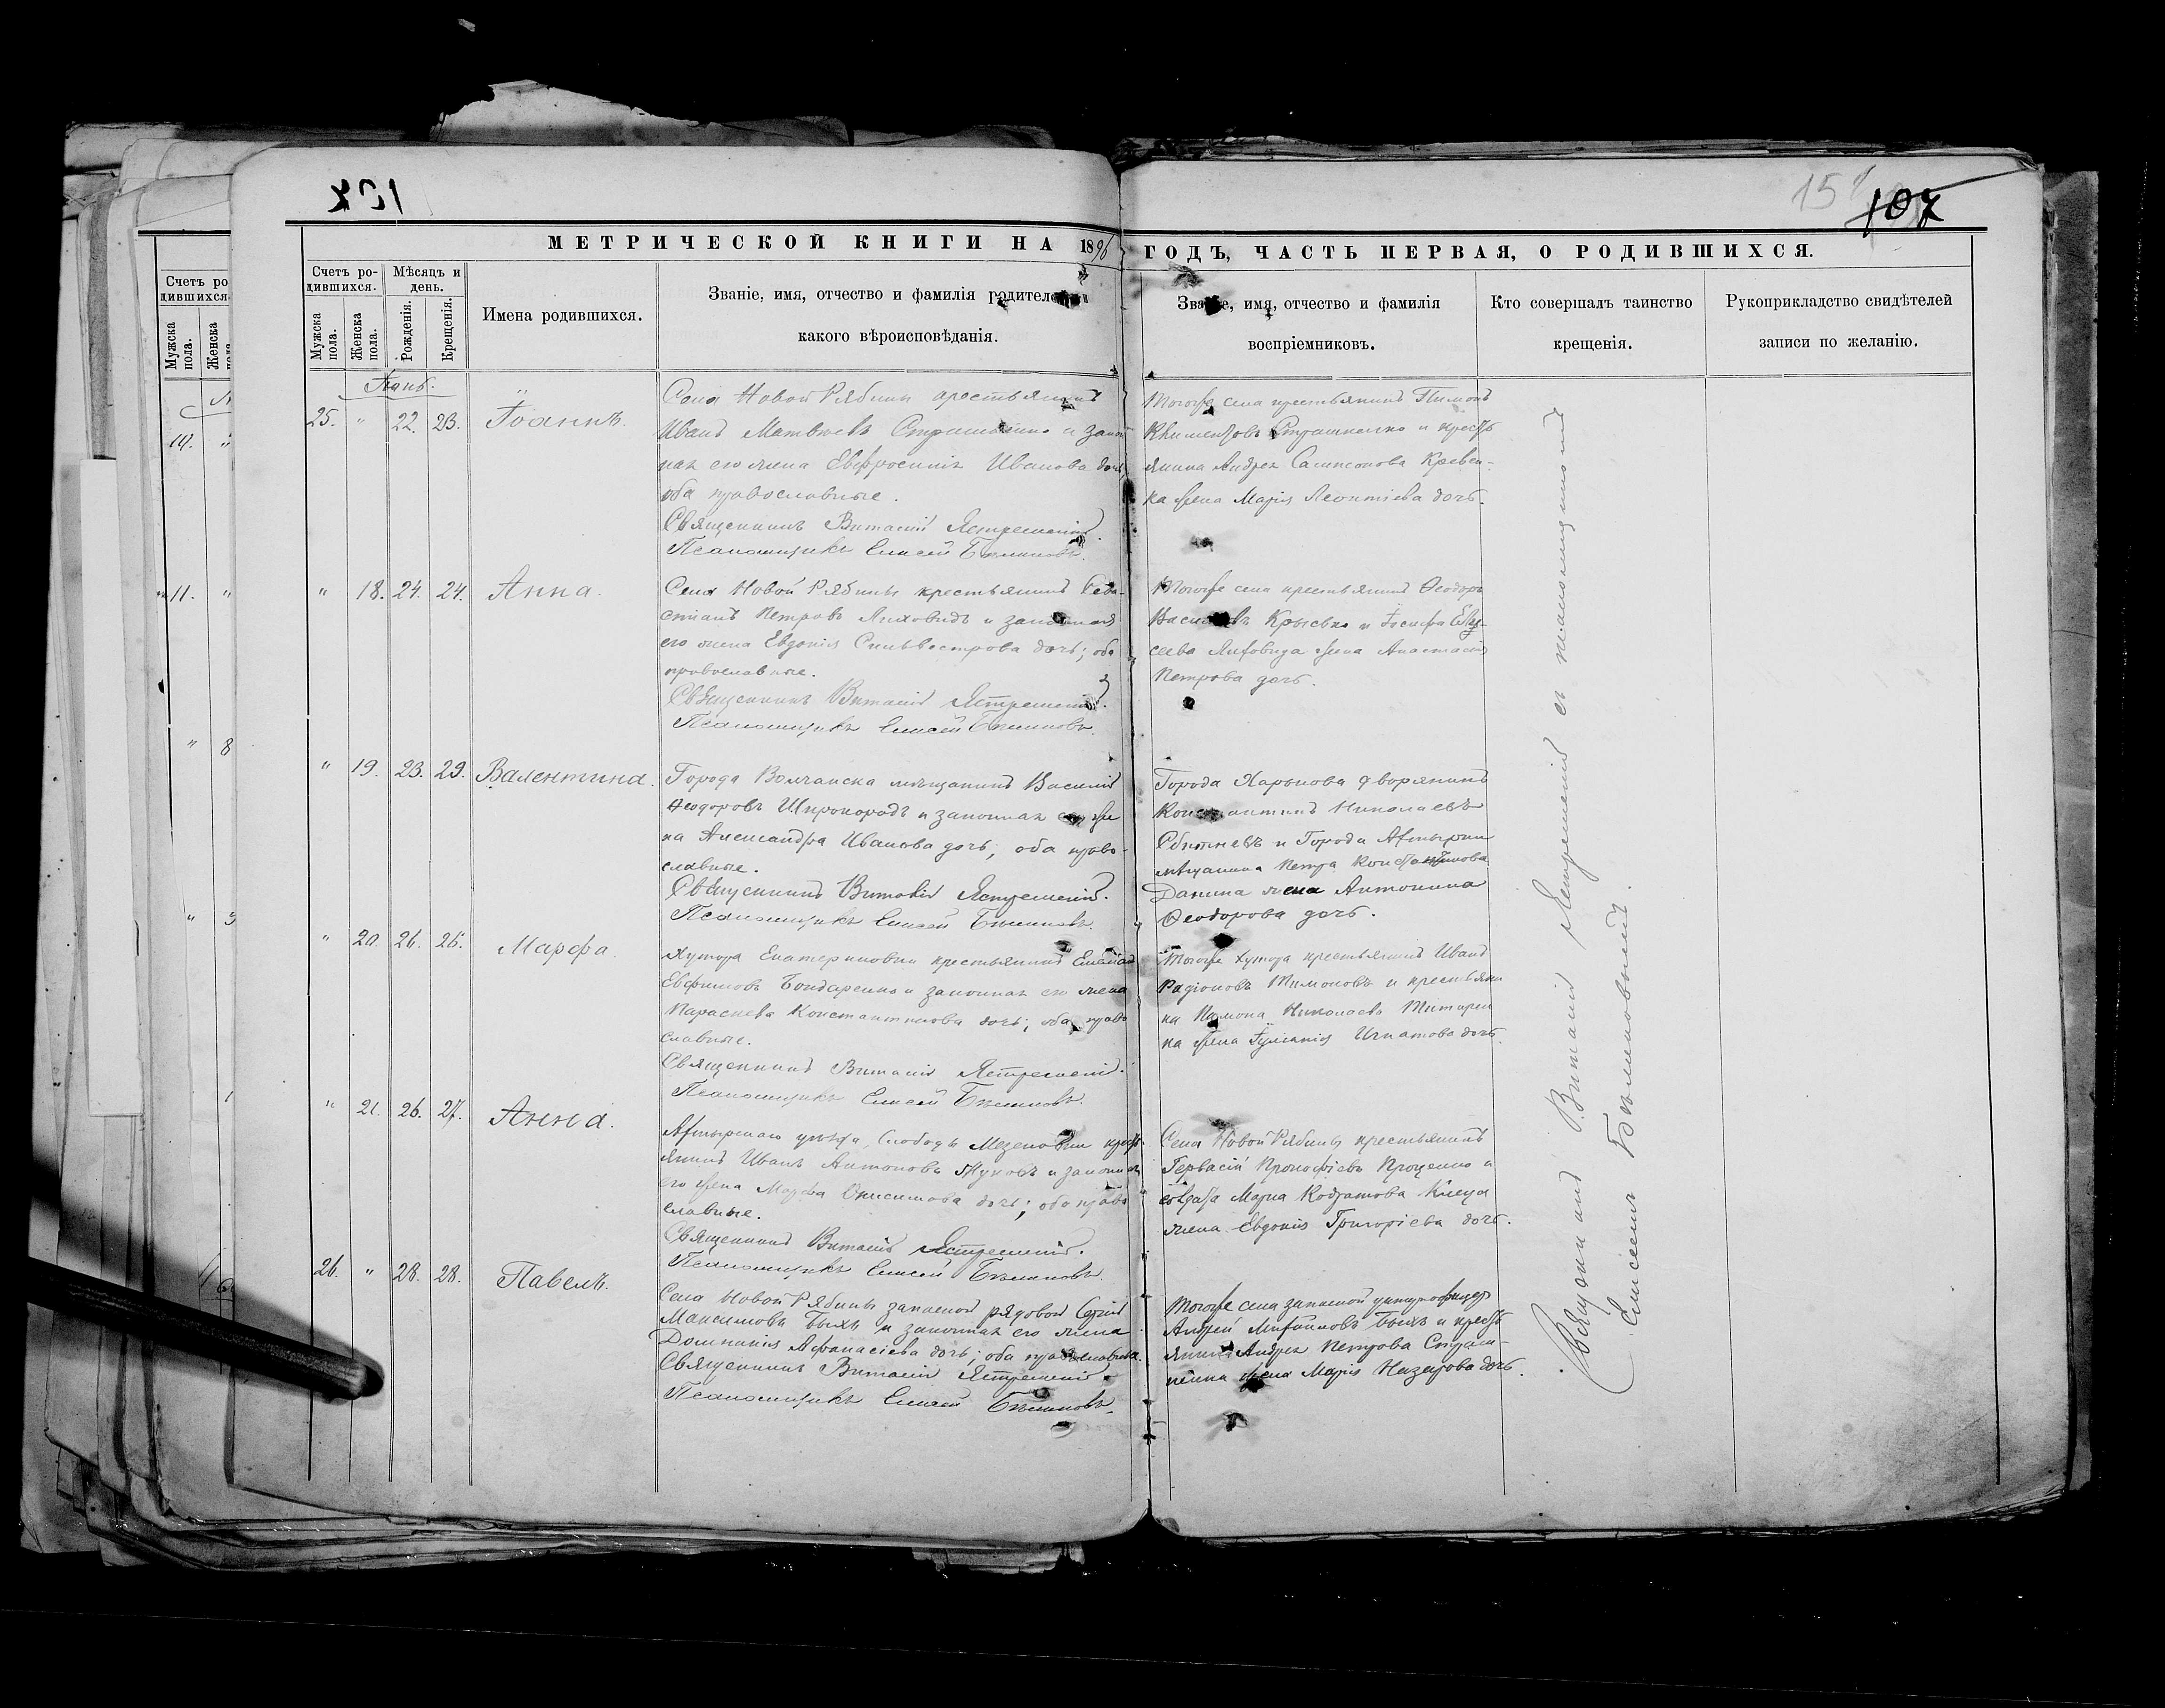 107
МЕТРИЧЕСКОЙ КНИГИ НА 1896
Счетъ ро-
дившихся.
Мужска
пола.
Женска
Счетъ ро-
дившихся.
Мѣсяцъ и
день.
Мужска
пола.
Женска
пола.
Рожденія.
Крещенія.
Имена родившихся.
Званіе, имя, отчество и фамилія родителей
какого вѣроисповѣданія.
25. " 22. 23. Іоаннъ.
Села Новой Рябины крестьянинъ
Иванъ Матвѣевъ и закон
ная его жена Евфросинія Иванова дочь,
оба православные.
Священникъ Виталій Ястремскій.
Псаломщикъ Елисей
" 18. 24. 24. Анна.
Села Новой Рябины крестьянинъ Сева-
стіанъ Петровъ Лиховидъ и законная
его жена Евдокія Сильвестрова дочь; оба
православные.
Священникъ Виталій Ястремскій.
Псаломщикъ Елисей
" 19. 23. 29. Валентина.
Города Волчанска мѣщанинъ Василій
Ѳеодоровъ и законная его же
на Александра Иванова дочь, оба право-
славные.
Священникъ Виталій Ястремскій.
Псаломщикъ Елисей
" 20. 26. 26. Марфа.
Хутора Екатериновки крестьянинъ
Евфимовъ Бондаренко и законная его жена
Параскева Константинова дочь; оба право
славные.
Священникъ Виталій Ястремскій.
Псаломщикъ Елисей
" 21. 26. 27. Анна.
Ахтырскаго уѣзда, Слободы крест-
янинъ Иванъ Антоновъ Жуковъ и законная
его жена Марфа Онисимова дочь; оба право
славные.
Священникъ Виталій Ястремскій.
Псаломщикъ Елисей
26. " 28. 28. Павелъ.
Села Новой Рябины запасной рядовой Сергій
Максимовъ Быкъ и законная его жена
Домникія Аѳанасіева дочь; оба православные.
Священникъ Виталій Ястремскій.
Псаломщикъ Елисей
107
ГОДЪ, ЧАСТЬ ПЕРВАЯ, О РОДИВШИХСЯ.
Званіе, имя, отчество и фамилія
воспріемниковъ.
Кто совершалъ таинство
крещенія.
Рукоприкладство свидѣтелей
записи по желанію.
Тогоже села крестьянинъ
и крестъ
янина Андрея Самсонова
ка жена Марія Леонтіева дочь.
Тогоже села крестьянинъ Ѳеодоръ
Васильевъ и Іосифа
сеева Лиховида жена Анастасія
Петрова дочь.
Города Харькова дворянинъ
Константинъ Николаевъ
Сбитневъ и Города Ахтырки
мѣщанина Петра Константинова
жена Антонина
Ѳеодорова дочь.
Тогоже хутора крестьянинъ Иванъ
Радіоновъ Тимоновъ и крестьяни
на Николаева Титарен
ка жена Іуліанія Игнатова дочь.
Села Новой Рябины крестьянинъ
Гервасій Прокофіевъ Проценко и
солдата Марка Кодратова
жена Евдокія Григоріева дочь.
Тогоже села запасной унтерофицеръ
Андрей Михайловъ Быкъ и крестъ
янина Андрея Петрова
жена Марія Назарова дочь.
Священникъ Виталій Ястремскій съ псаломщикомъ
Елисеемъ